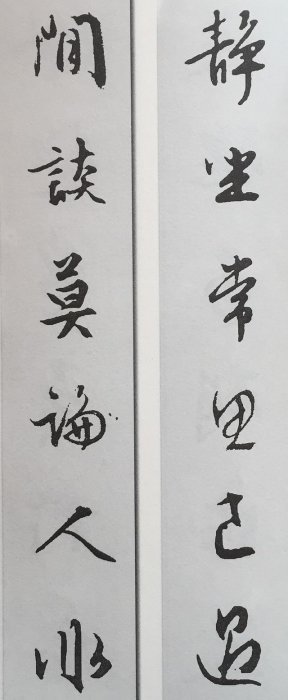 静坐常思己過
閒談莫論人非